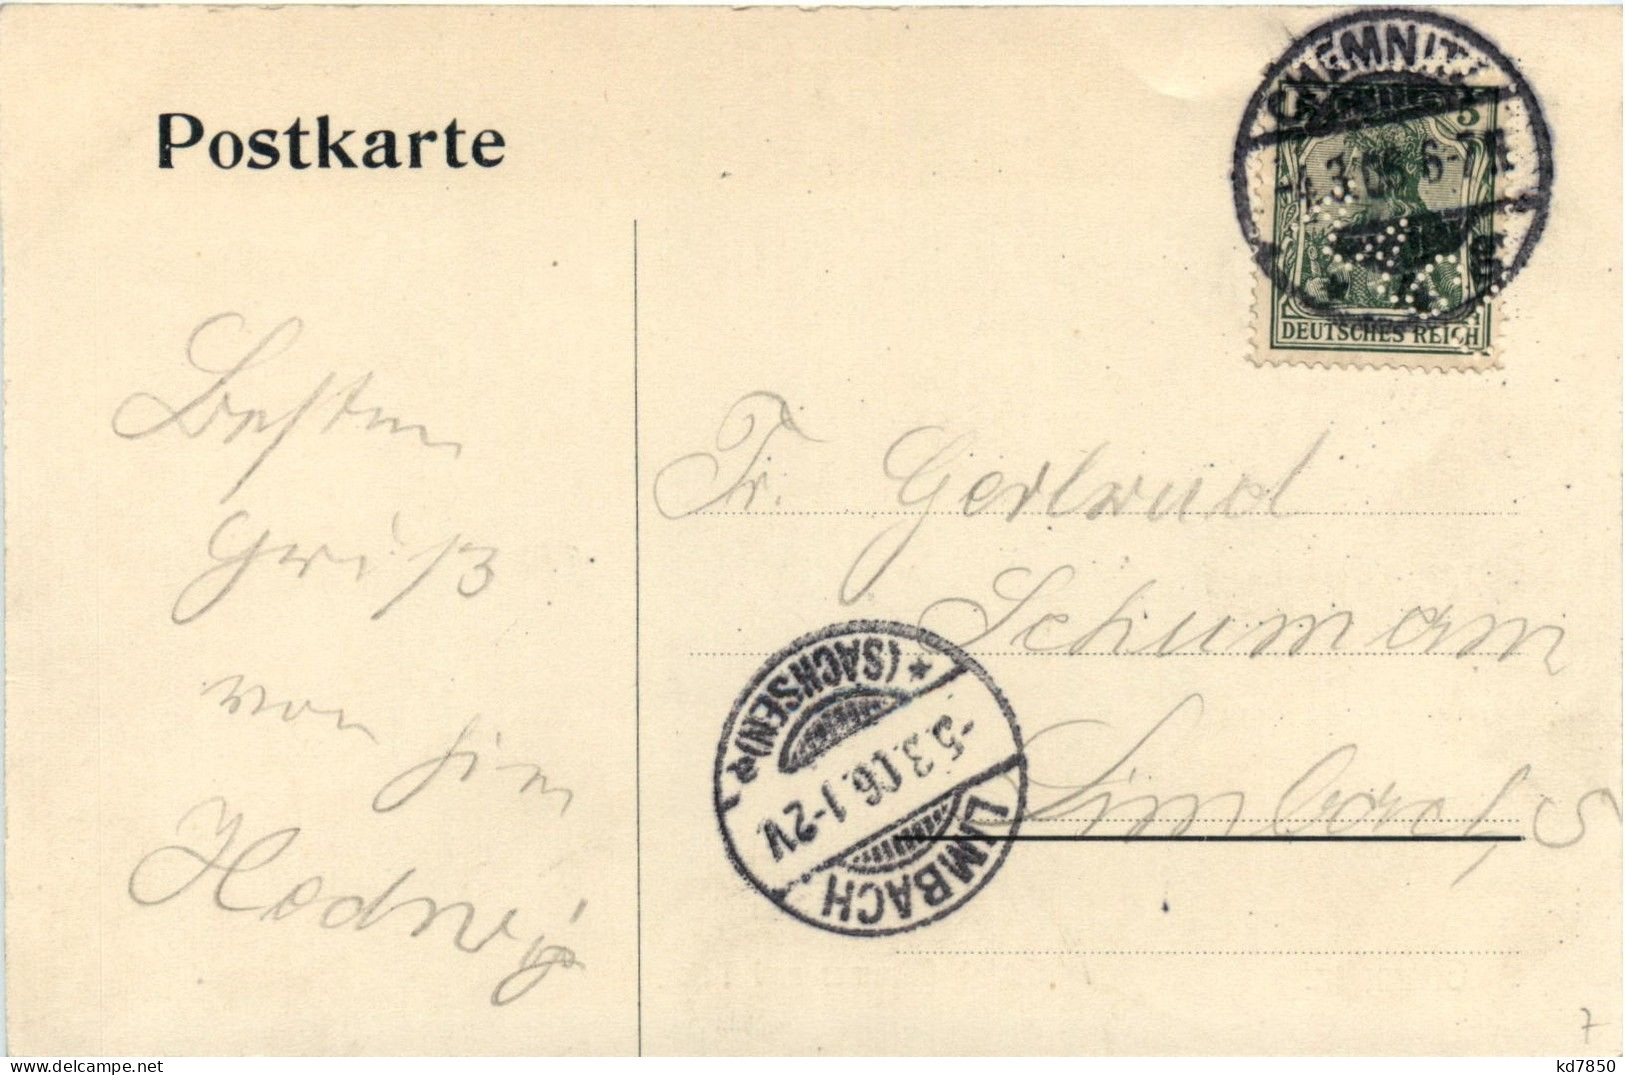 Postkarte
CHEMNITZ
5
4.3.06 6-7N
* 4 S
DEUTSCHES REICH
Besten
Gruß
von
Hedwig
Fr. Gertrud
Schumann
Limbach, S
LIMBACH
-5.3.06.1-2V.
* (SACHSEN) a
7
kd7850